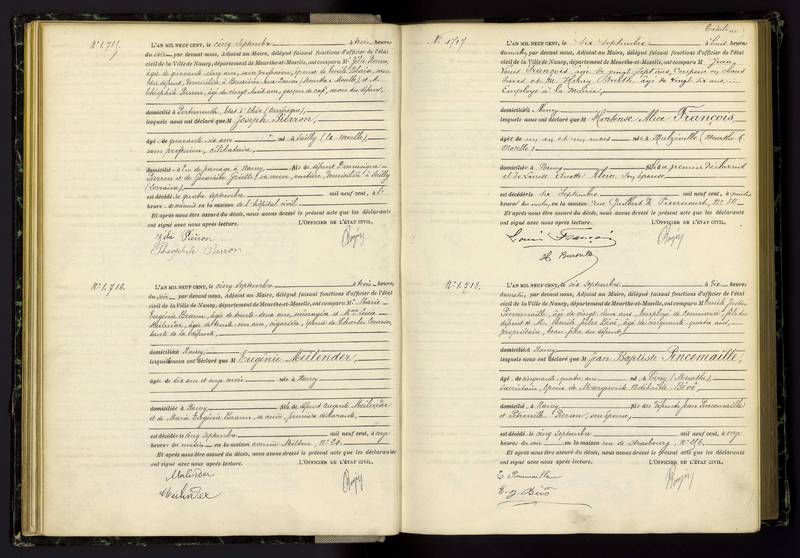 N° 1.715.
L'AN MIL NEUF CENT, le cinq Septembre à trois heures
du soir, par devant nous, Adjoint au Maire, délégué faisant fonctions d'officier de l'état
civil de la Ville de Nancy, département de Meurthe-et-Moselle, ont comparu M
âgée de quarante cinq ans, sans profession, épouse de
domicilié à Portsmouth, Etat d'Ohio (Amérique),
lesquels nous ont déclaré que M Joseph Pierron,
âgé de quarante six ans né à Sailly (La Moselle),
sans profession, célibataire,
domicilié à en passage à Nancy fils de défunt Dominique
Pierron et de sa veuve, rentière, domiciliée à Sailly
(Lorraine)
est décédé le quatre Septembre mil neuf cent, à
heure en la maison de l'hôpital civil
Et après nous être assuré du décès, nous avons dressé le présent acte que les déclarants
ont signé avec nous après lecture. L'OFFICIER DE L'ÉTAT CIVIL,
Pierron
Théophile Pierron
N° 1.716.
L'AN MIL NEUF CENT, le cinq Septembre à trois heures
du soir, par devant nous, Adjoint au Maire, délégué faisant fonctions d'officier de l'état
civil de la Ville de Nancy, département de Meurthe-et-Moselle, ont comparu M Marie
Eugénie Braun, âgée de trente deux ans, ménagère et
Meilender, âgée de trente
tante de la défunte,
domiciliées à Nancy
lesquelles nous ont déclaré que M Eugénie Meilender,
âgée de dix ans et onze mois née à Nancy
domiciliée à Nancy fille de défunt Auguste Meilender
et de Marie Eugénie Braun, sa veuve, première déclarante,
est décédée le cinq Septembre mil neuf cent, à onze
heures du matin en la maison avenue Milton, N° 20.
Et après nous être assuré du décès, nous avons dressé le présent acte que les déclarants
ont signé avec nous après lecture. L'OFFICIER DE L'ÉTAT CIVIL,
Meilender
N° 1717.
L'AN MIL NEUF CENT, le Six Septembre à huit heures
du matin, par devant nous, Adjoint au Maire, délégué faisant fonctions d'officier de l'état
civil de la Ville de Nancy, département de Meurthe-et-Moselle, ont comparu M Jean
Louis François, âgé de vingt sept ans, Coupeur en chaus
sures, et M. Henry âgé de vingt six ans,
Employé à la Mairie,
domiciliés à Nancy
lesquels nous ont déclaré que M Hortense Alice François,
âgée de un an et un mois née à Malzéville (Meurthe &
Moselle)
domiciliée à Nancy fille du premier déclarant
et de Louise Klein, son épouse
est décédée le six Septembre mil neuf cent, à quatre
heures du matin, en la maison rue Guilbert de Pixerécourt, N° 30
Et après nous être assuré du décès, nous avons dressé le présent acte que les déclarants
ont signé avec nous après lecture. L'OFFICIER DE L'ÉTAT CIVIL,
Louis François
N° 1.718.
L'AN MIL NEUF CENT, le six Septembre à dix heures
du matin, par devant nous, Adjoint au Maire, délégué faisant fonctions d'officier de l'état
civil de la Ville de Nancy, département de Meurthe-et-Moselle, ont comparu M Emile Justin
Pincemaille, âgé de vingt deux ans, employé de commerce, fils du
défunt et M. Emile Jules Bévô, âgé de cinquante quatre ans,
propriétaire, beau-frère du défunt,
domiciliés à Nancy
lesquels nous ont déclaré que M Jean Baptiste Pincemaille,
âgé de cinquante quatre ans né à Cirey (Meurthe)
Sacristain, époux de Marguerite Adélaïde Bévô,
domicilié à Nancy fils des défunts Jean Pincemaille
et Pétronille Pierron, son épouse,
est décédé le cinq Septembre mil neuf cent, à onze
heures du soir, en la maison rue de Strasbourg, N° 216,
Et après nous être assuré du décès, nous avons dressé le présent acte que les déclarants
ont signé avec nous après lecture. L'OFFICIER DE L'ÉTAT CIVIL,
E. Pincemaille
E. J. Bévô